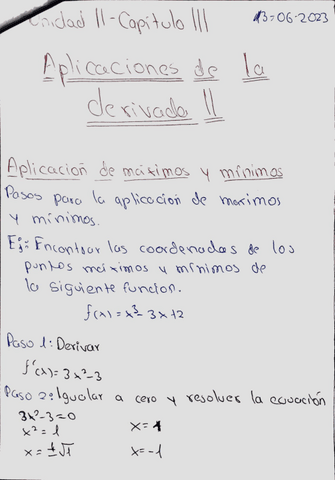 Unidad II - Capítulo III
13-06-2023
Aplicaciones de la
derivada II
Aplicación de máximos y mínimos
Pasos para la aplicacion de maximos
y mínimos.
Ej: Encontrar las coordenadas de los
puntos máximos y mínimos de
la siguiente funcion.
f(x) = x³ - 3x + 2
Paso 1: Derivar
f'(x) = 3x² - 3
Paso 2: Igualar a cero y resolver la ecuación
3x² - 3 = 0
x = 1
x² = 1
x = ±√1
x = -1